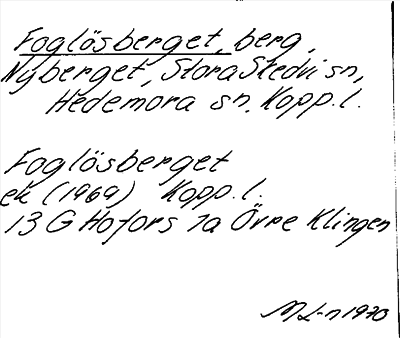 Foglösberget, berg,
Nyberget, Stora Skedvi sn,
Hedemora sn. Kopp. l.
Foglösberget
ek (1969) Kopp. l.
13 G Hofors 7a Övre Klingen
M L-n 1970